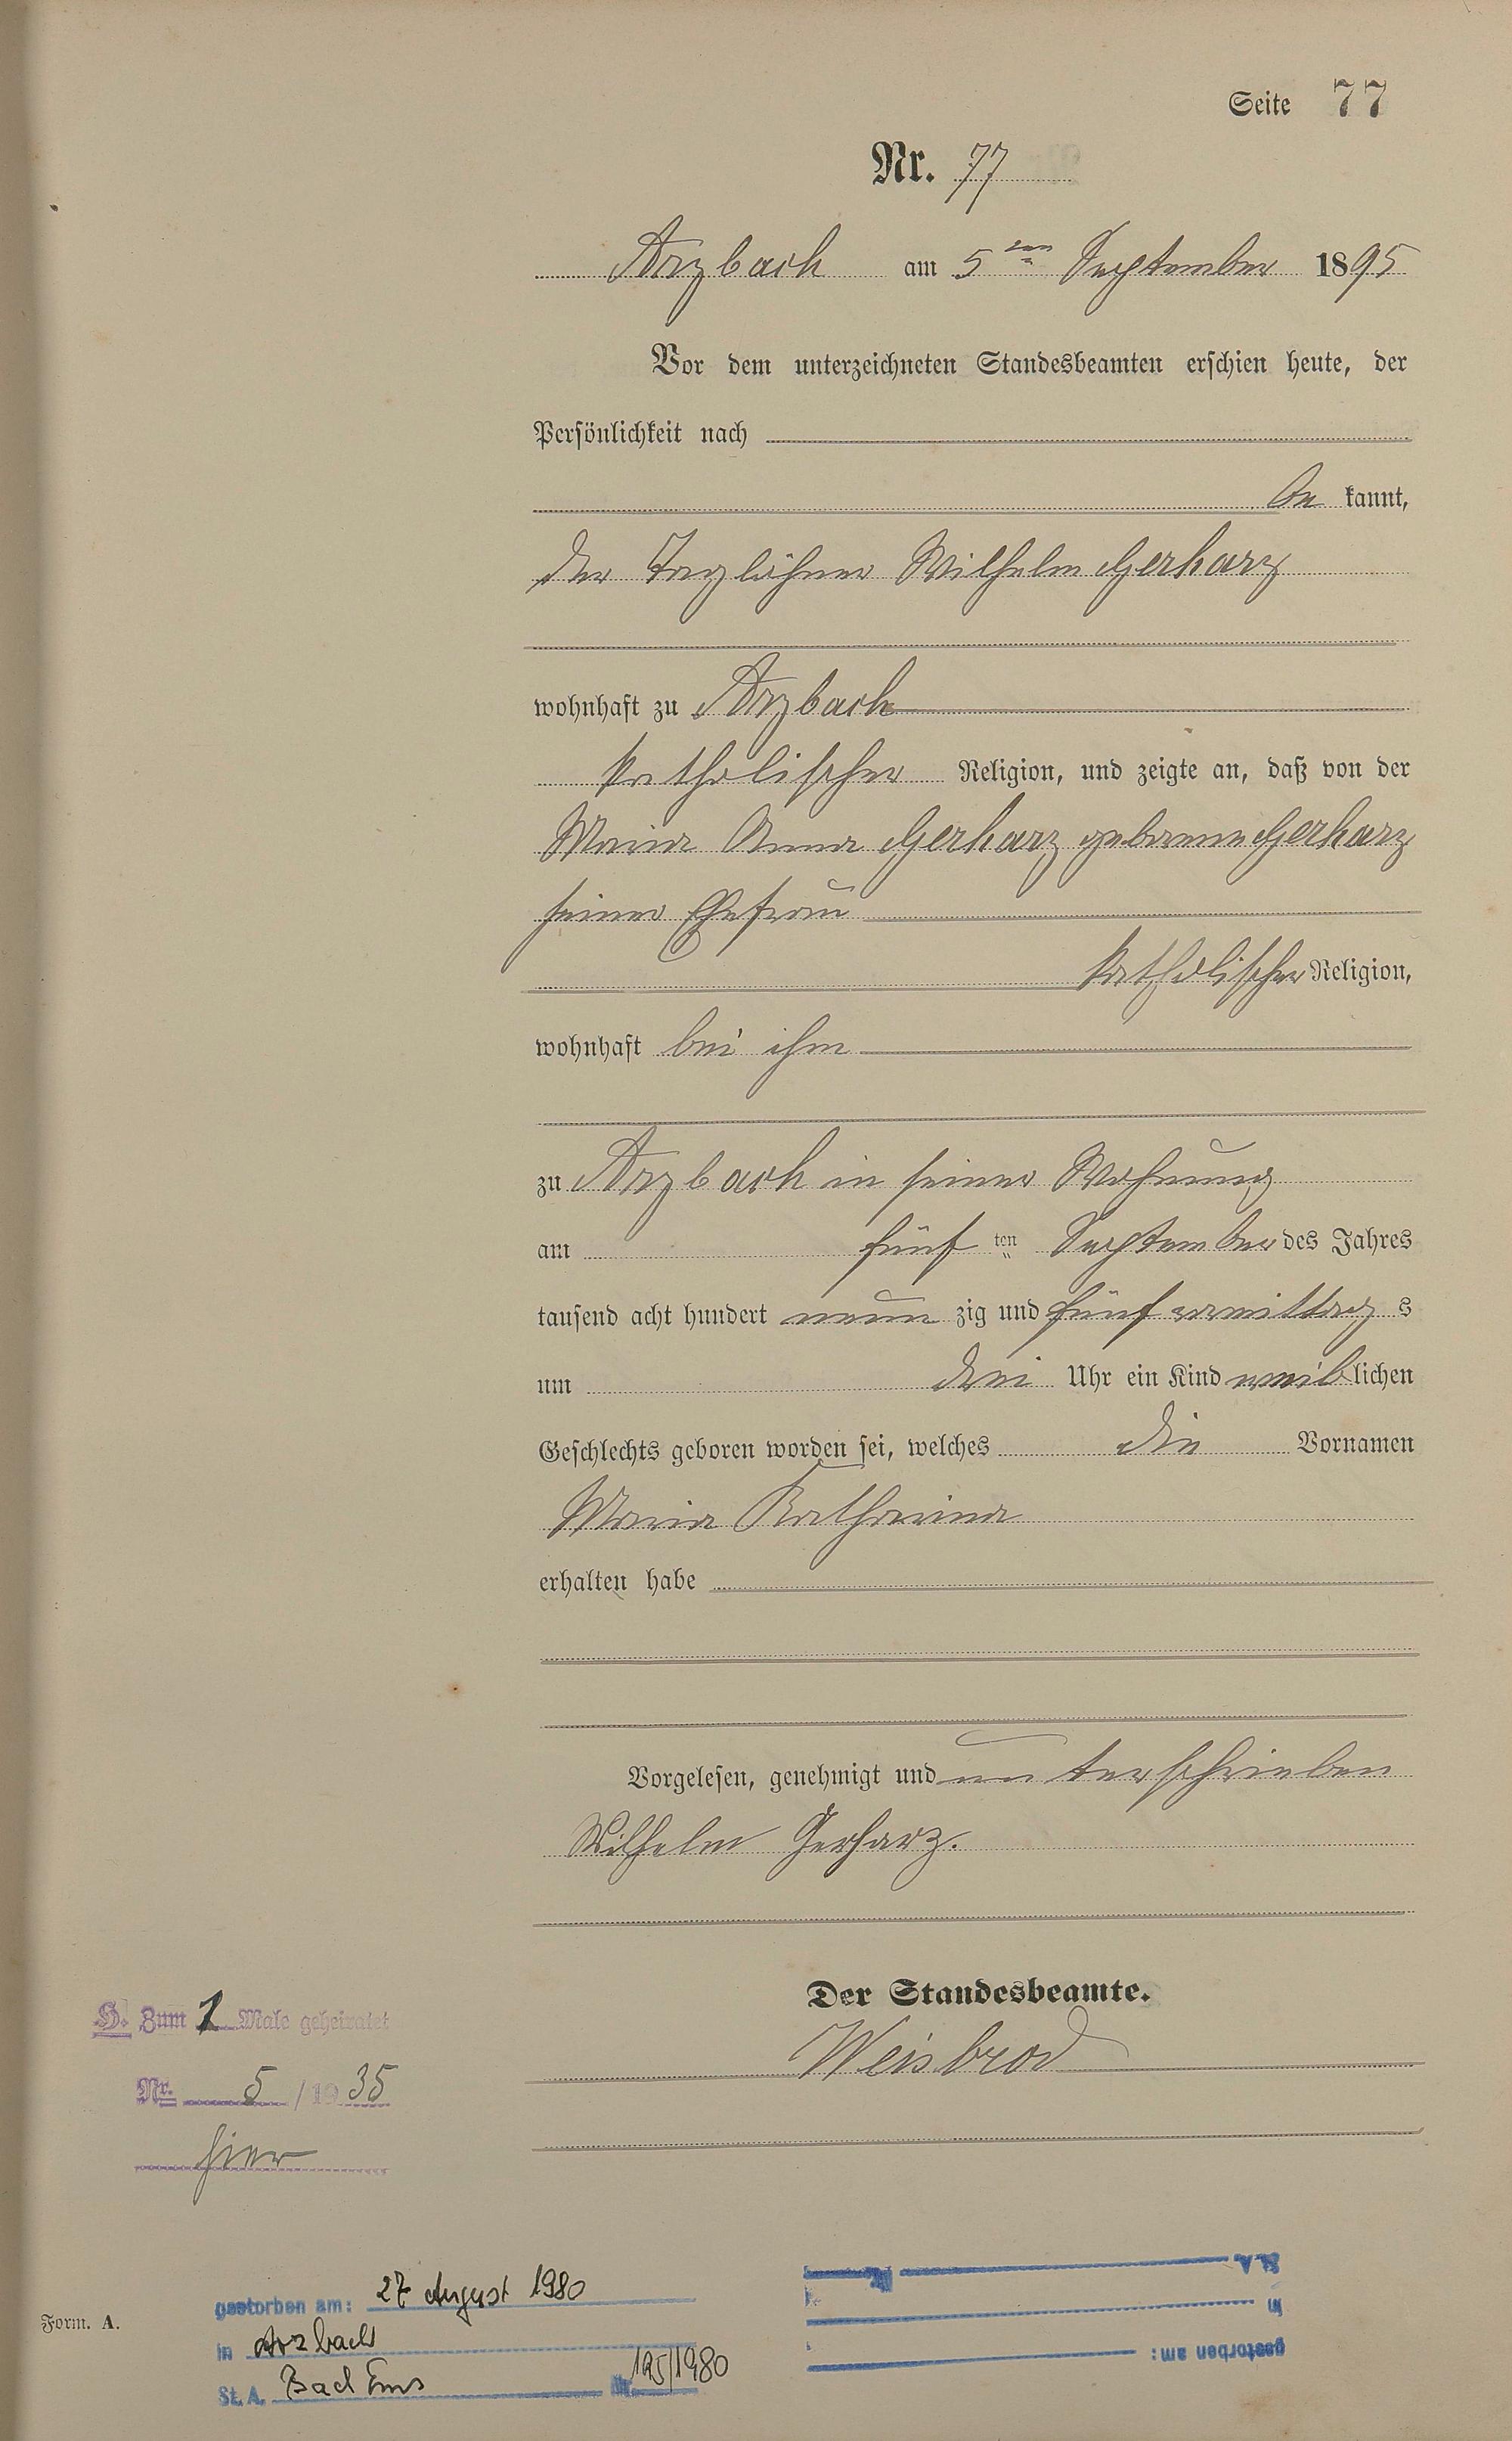 Seite 77
Nr. 77
Arzbach am 5ten September 1895
Vor dem unterzeichneten Standesbeamten erschien heute, der
Persönlichkeit nach
be kannt,
der Taglöhner Wilhelm Gerharz
wohnhaft zu Arzbach
katholischer Religion, und zeigte an, daß von der
Maria Anna Gerharz geborene Gerharz
seiner Ehefrau
katholischer Religion,
wohnhaft bei ihm
zu Arzbach in seiner Wohnung
am fünf ten September des Jahres
tausend acht hundert neun zig und fünf vormittag s
um drei Uhr ein Kind weiblichen
Geschlechts geboren worden sei, welches die Vornamen
Maria Katharina
erhalten habe
Vorgelesen, genehmigt und unterschrieben
Wilhelm Gerharz.
Der Standesbeamte.
Weisbrod
H. Zum 1 Male geheiratet
Nr. 5/1935
hier
Form. A.
gestorben am: 27 August 1980
in Arzbach
St. A. Bad Ems Nr. 195/1980
gestorben am:
in
St. A. Nr.